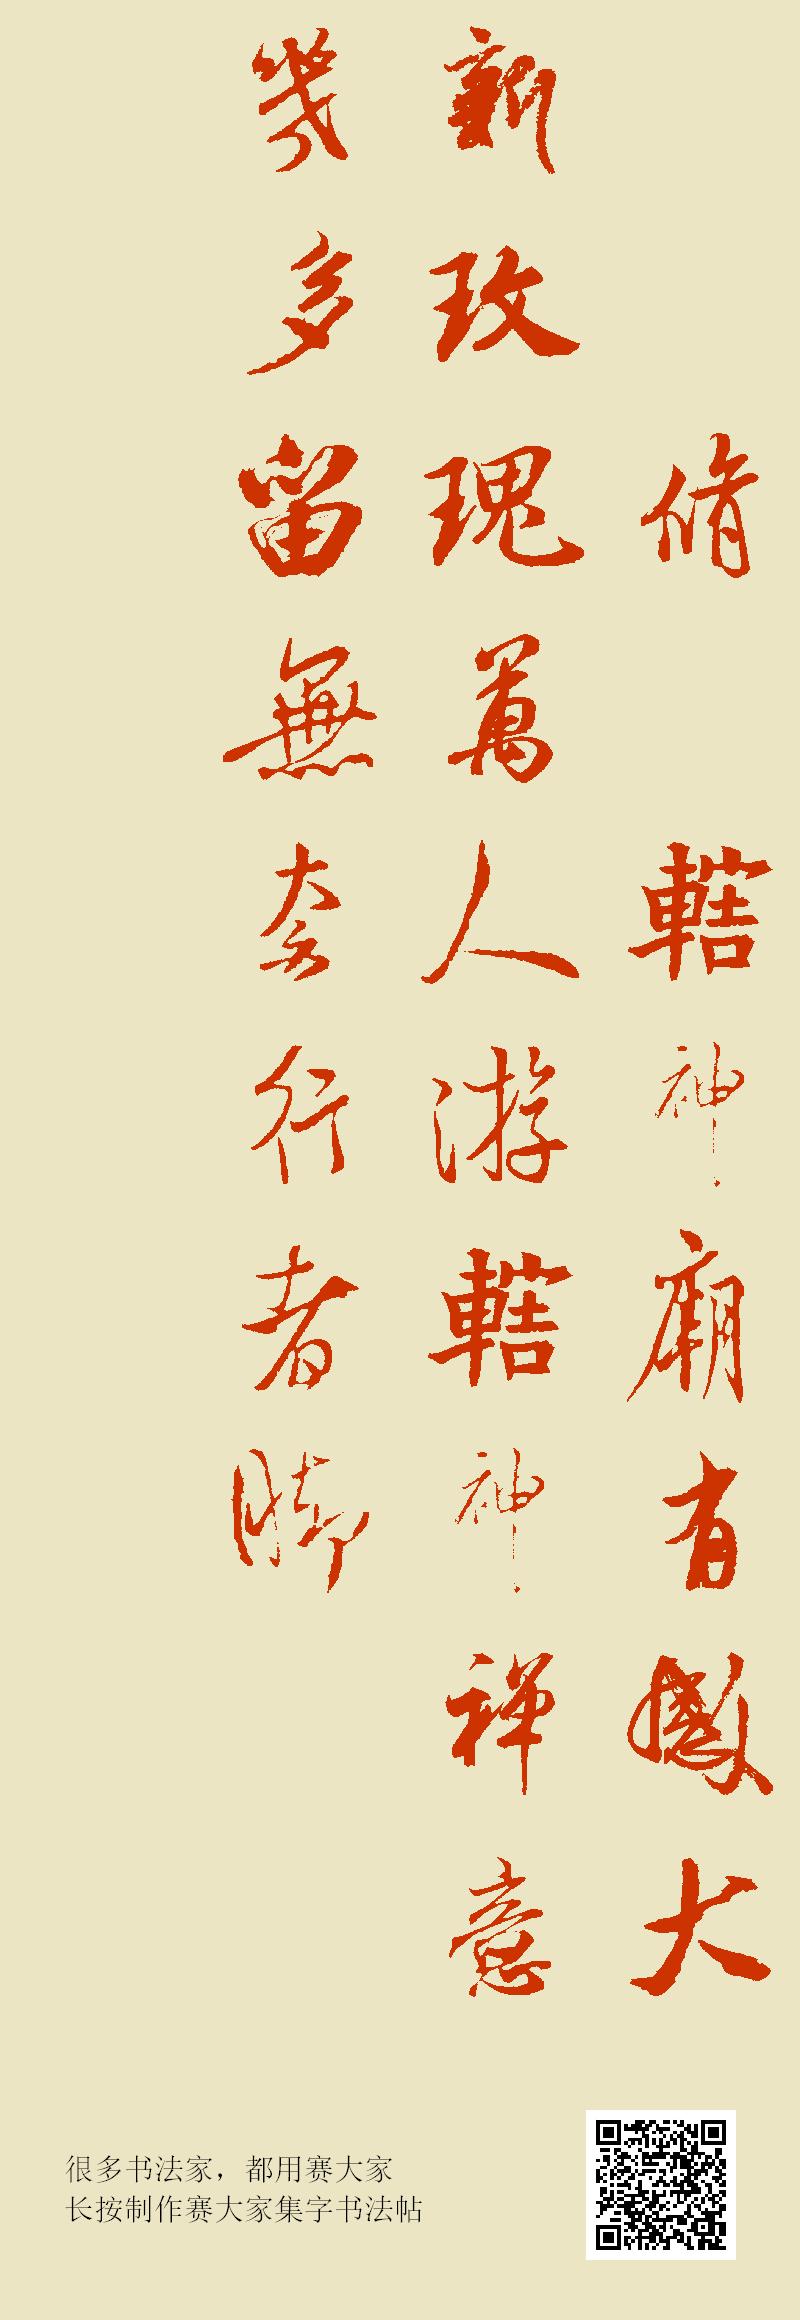 脩 轄神廟有感大
新玫瑰萬人游轄神禅意
幾多留無行者脚
很多书法家，都用赛大家
长按制作赛大家集字书法帖